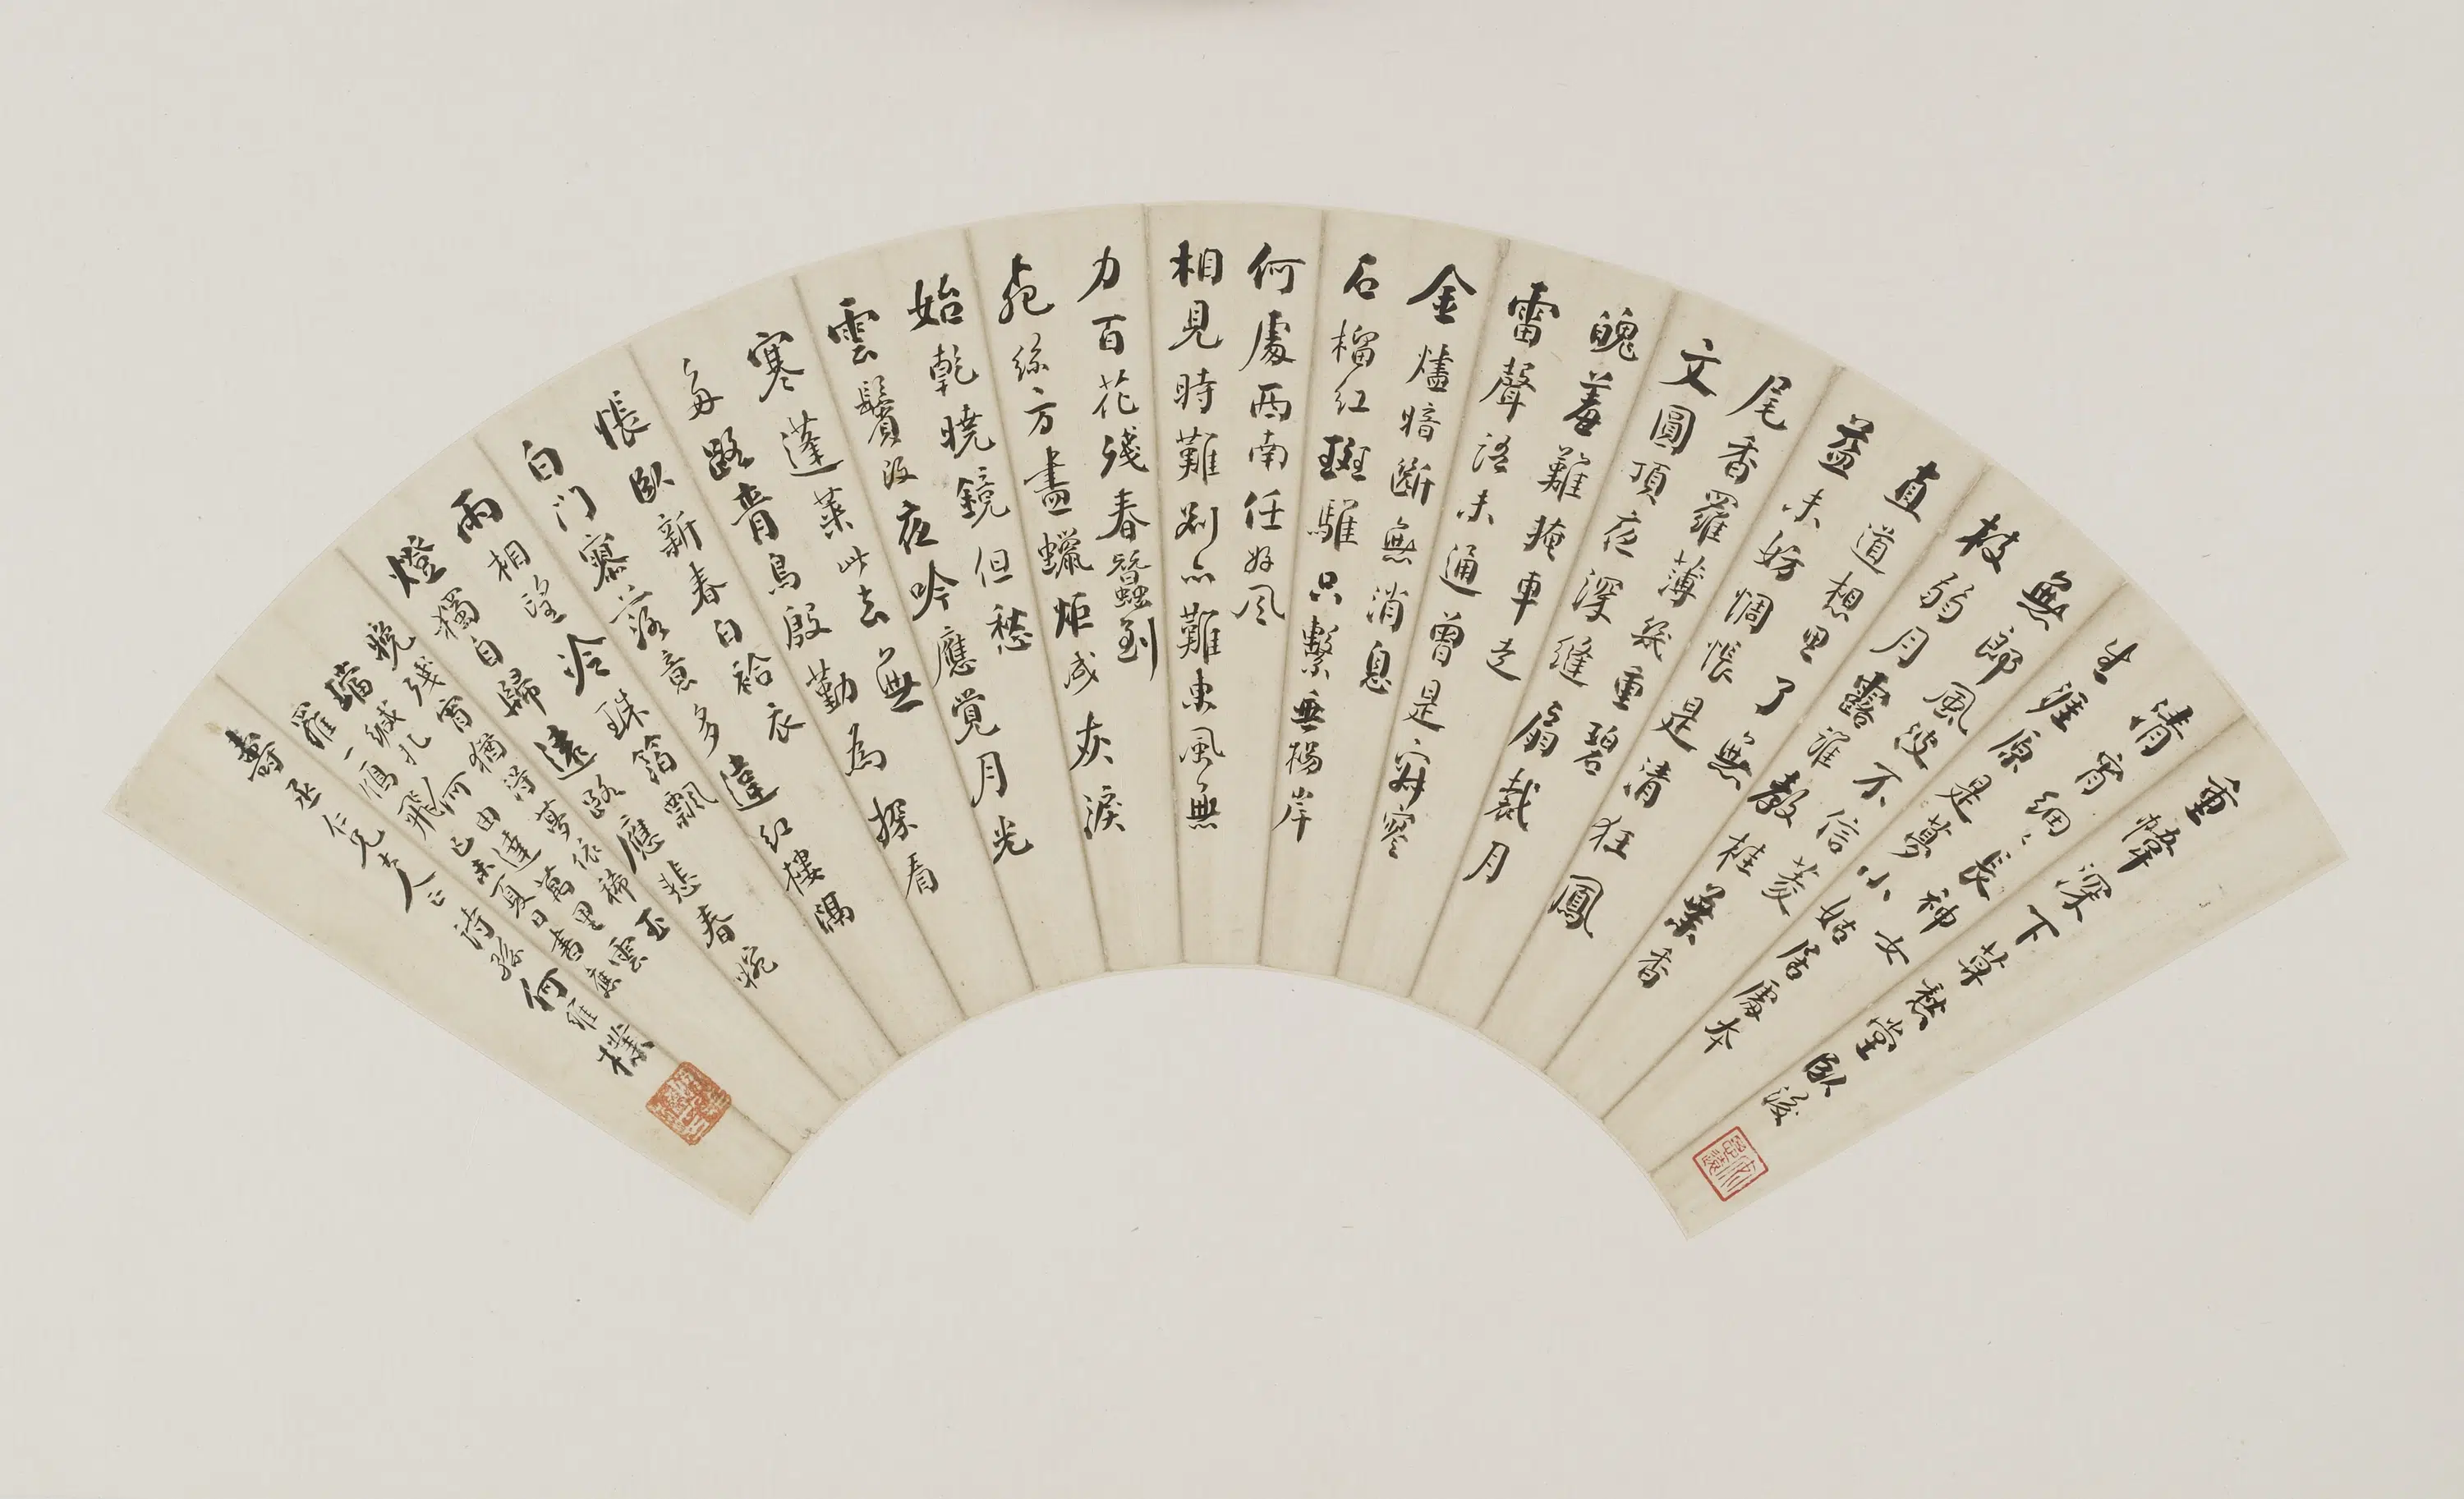 重幃深下莫愁堂臥後
清宵細〻長神女
生涯原是夢小姑居處本
無郎風波不信菱
枝弱月露誰教桂葉香
直道想思了無
益未妨惆悵是清狂鳳
尾香羅薄幾重碧
文圓頂夜深縫扇裁月
魄羞難掩車走
雷聲語未通曾是寂寥
金燼暗斷無消息
石榴紅斑騅只繫垂楊岸
何處西南任好風
相見時難別亦難東風無
力百花殘春蠶到
死絲方盡蠟炬成灰淚
始乾曉鏡但愁
雲鬢改夜吟應覺月光
寒蓬萊此去無
多路青鳥殷勤為探看
悵臥新春白袷衣
白門寥落意多違紅樓隔
雨相望冷珠箔飄
燈獨自歸遠路應悲春晼
晚殘宵猶得夢依稀玉
璫緘札何由達萬里雲
羅一鴈飛 己未夏日書應
壽丞仁兄大人正 詩孫何維樸